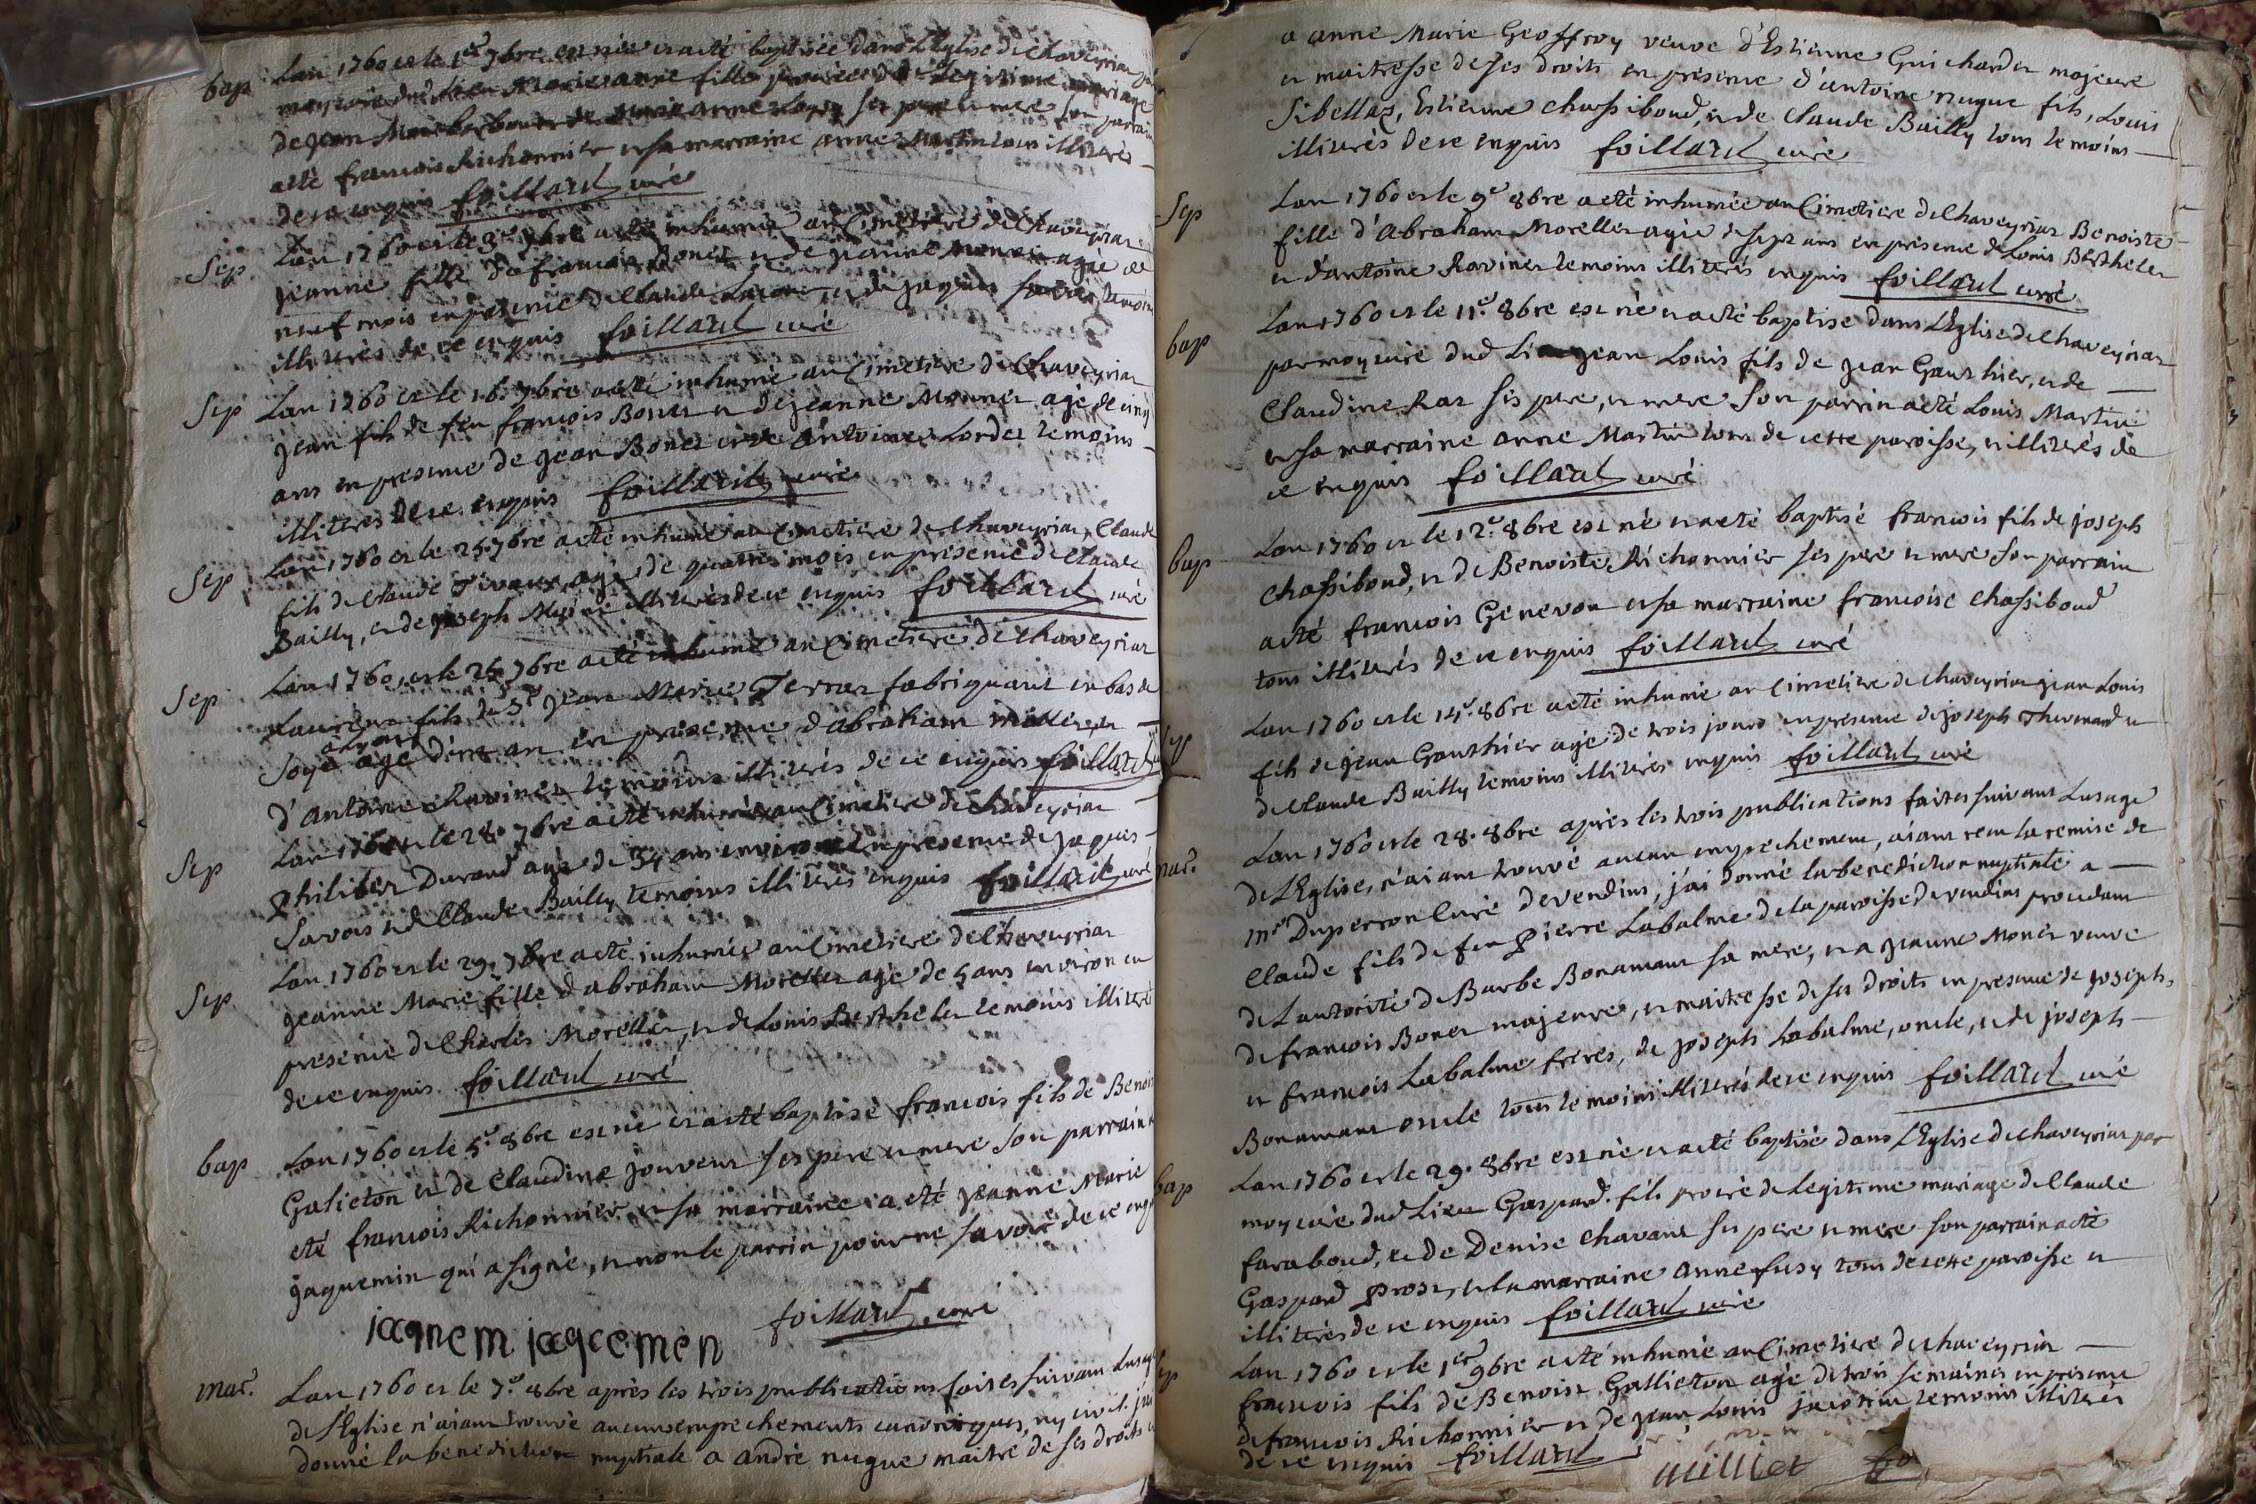 bap Lan 1760 et le 1er 7bre est née et a eté baptisée dans l'Eglise de Chaveyriat par
moy curé dud Lieu Marie anne fille procrée de Legitime mariage
de jean et de Marie anne ses pere et mere son parrain
aeté francois Richonnier et sa marraine anne Martin tous illiterés
de ce enquis foillard curé
Sep Lan 1760 et le 3e 7bre aeté inhumée au Cimetiere de Chaveyriat
jeanne fille de francois Bonet et de jeanne Monet agée de
neuf mois en presence de Claude et de jaques temoins
illiterés de ce enquis foillard curé
Sep Lan 1760 et le 16. 7bre aeté inhumé au Cimetiere de Chaveyriat
jean fils de feu francois Bonet et de jeanne Monnet agé de cinq
ans en presence de jean Bonet et de antoine Lordet temoins
illiterés de ce enquis foillard curé
Sep Lan 1760 et le 25. 7bre aeté inhumé au Cimetiere de Chaveyriat, Claude
fils de Claude agé de quatre mois en presence de Claude
Bailly, et de joseph illiterés de ce enquis foillard curé
Sep Lan 1760 et le 25 7bre aeté inhumé au Cimetiere de Chaveyriat
Laurent fils du Sr jean Marie Ferrar fabriquant en bas de
Soye agé d'un an en presence d'abraham et
d'Antoine Ravinet temoins illiterés de ce enquis foillard
Sep Lan 1760 et le 28. 7bre aeté inhumé au Cimetiere de Chaveyriat
Philibert Durand agé de 34 ans environ en presence de jaques
Savois et de Claude Bailly temoins illiterés enquis foillard curé
Sep Lan 1760 et le 29. 7bre aeté inhumée au Cimetiere de Chaveyriat
jeanne Marie fille d'abraham Morellet agée de 5 ans environ en
presence de Charles Morellet, et de Louis Berthelet temoins illiterés
de ce enquis. foillard curé
bap Lan 1760 et le 5e 8bre est né et aeté baptisé francois fils de Benoit
Galicton et de Claudine jouvent ses pere et mere son parrain a
eté francois Richonnier et sa marraine a eté jeanne Marie
jaquemin qui a signé, et non le parrin pour ne savoir de ce enquis
jaqnem jaqcemen foillard curé
mar. Lan 1760 et le 7e 8bre après les trois publications faites suivant Lusage
de l'Eglise n'aiant trouvé aucuns empechements canoniques, ny civil j'ai
donné la benediction nuptiale a andré nugue maitre de ses droits et
a anne Marie Geoffroy veuve d'Estienne Guichardet majeure
et maitresse de ses droits en presence d'antoine nugue fils, Louis
Sibellas, Estienne Chassiboud, et de Claude Bailly tous temoins
illiterés de ce enquis foillard curé
Sep Lan 1760 et le 9e 8bre aeté inhumée au Cimetiere de Chaveyriat Benoiste
fille d'abraham Morellet agée de sept ans en presence de Louis Berthelet
et d'antoine Ravinet temoins illiterés enquis foillard curé
bap Lan 1760 et le 11e. 8bre est né et aeté baptisé dans l'Eglise de Chaveyriat
par moy curé dud Lieu jean Louis fils de jean Gauthier, et de
Claudine Rat ses pere, et mere son parrin aeté Louis Martin
et sa marraine anne Martin tous de cette paroisse, et illiterés de
ce enquis foillard curé
bap Lan 1760 et le 12e. 8bre est né et aeté baptisé francois fils de joseph
Chassiboud, et de Benoiste Richonnier ses pere et mere son parrain
aeté francois Genevon et sa marraine francoise Chassiboud
tous illiterés de ce enquis foillard curé
Sep Lan 1760 et le 14e. 8bre aeté inhumé au Cimetiere de Chaveyriat jean Louis
fils de jean Gauthier agé de trois jours en presence de joseph Thevenard et
de Claude Bailly temoins illiterés enquis foillard curé
mar. Lan 1760 et le 28. 8bre après les trois publications faites suivant Lusage
de l'Eglise, n'aiant trouvé aucun empechement, aiant reçu la remise de
Mre Duperron Curé de vendins, j'ai donné la benediction nuptiale a
Claude fils de feu Pierre Labalme de la paroisse de vendins procedant
de L'autorité de Barbe Bonamour sa mere, et a jeanne Monet veuve
de francois Bonet majeure, et maitresse de ses droits en presence de joseph,
et francois Labalme freres, de joseph Labalme, oncle, et de joseph
Bonamour oncle tous temoins illiterés de ce enquis foillard curé
bap Lan 1760 et le 29. 8bre est né et aeté baptisé dans l'Eglise de Chaveyriat par
moy curé dud Lieu Gaspard fils procréé de Legitime mariage de Claude
faraboud, et de Denise Chavant ses pere et mere son parrain aeté
Gaspard Prost, et la marraine anne fusy tous de cette paroisse et
illiterés de ce enquis foillard curé
Sep Lan 1760 et le 1er 9bre aeté inhumé au Cimetiere de Chaveyriat
francois fils de Benoist Gallicton agé de trois semaines en presence
de francois Richonnier et de jean Louis temoins illiterés
de ce enquis foillard